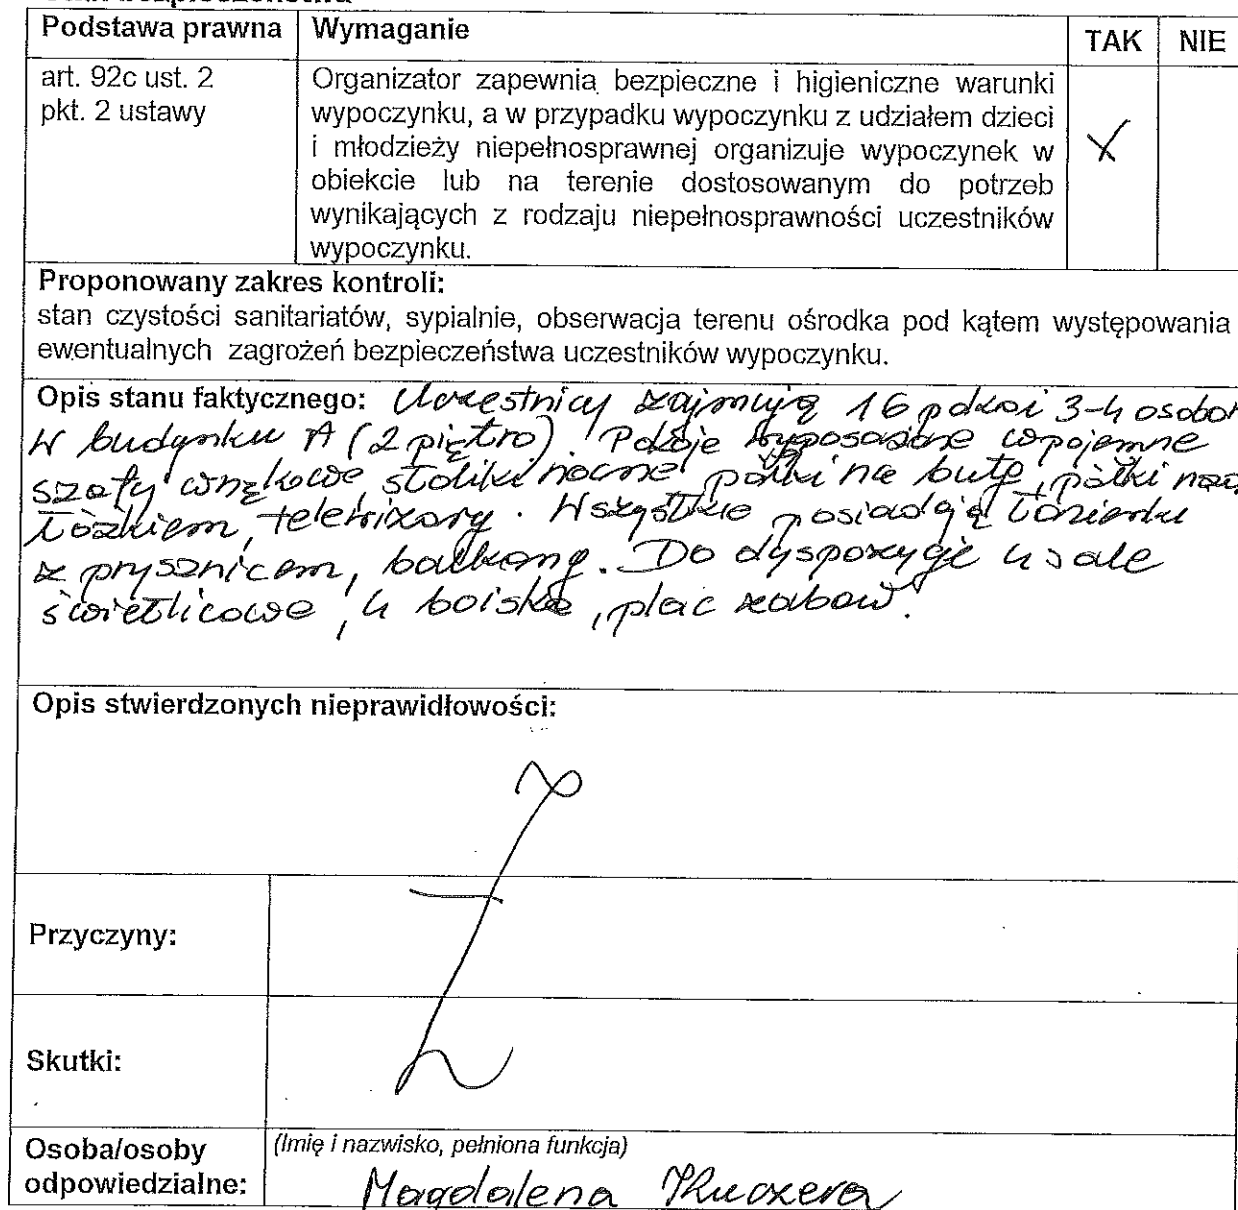 Podstawa prawna Wymaganie TAK NIE
art. 92c ust. 2 Organizator zapewnia bezpieczne i higieniczne warunki
pkt. 2 ustawy wypoczynku, a w przypadku wypoczynku z udziałem dzieci
i młodzieży niepełnosprawnej organizuje wypoczynek w
obiekcie lub na terenie dostosowanym do potrzeb
wynikających z rodzaju niepełnosprawności uczestników
wypoczynku.
Proponowany zakres kontroli:
stan czystości sanitariatów, sypialnie, obserwacja terenu ośrodka pod kątem występowania
ewentualnych zagrożeń bezpieczeństwa uczestników wypoczynku.
Opis stanu faktycznego: Uczestnicy zajmują 16 pokoi 3-4 osobow
W budynku A (2 piętro). Pokoje wyposażone w pojemne
szafy wnękowe, stoliki nocne, półki na buty, półki nad
łóżkiem, telewizory. Wszystkie posiadają łazienki
z prysznicem, balkony. Do dyspozycji 4 sale
świetlicowe, 4 boiska, plac zabaw.
Opis stwierdzonych nieprawidłowości:
Przyczyny:
Skutki:
Osoba/osoby (Imię i nazwisko, pełniona funkcja)
odpowiedzialne: Magdalena